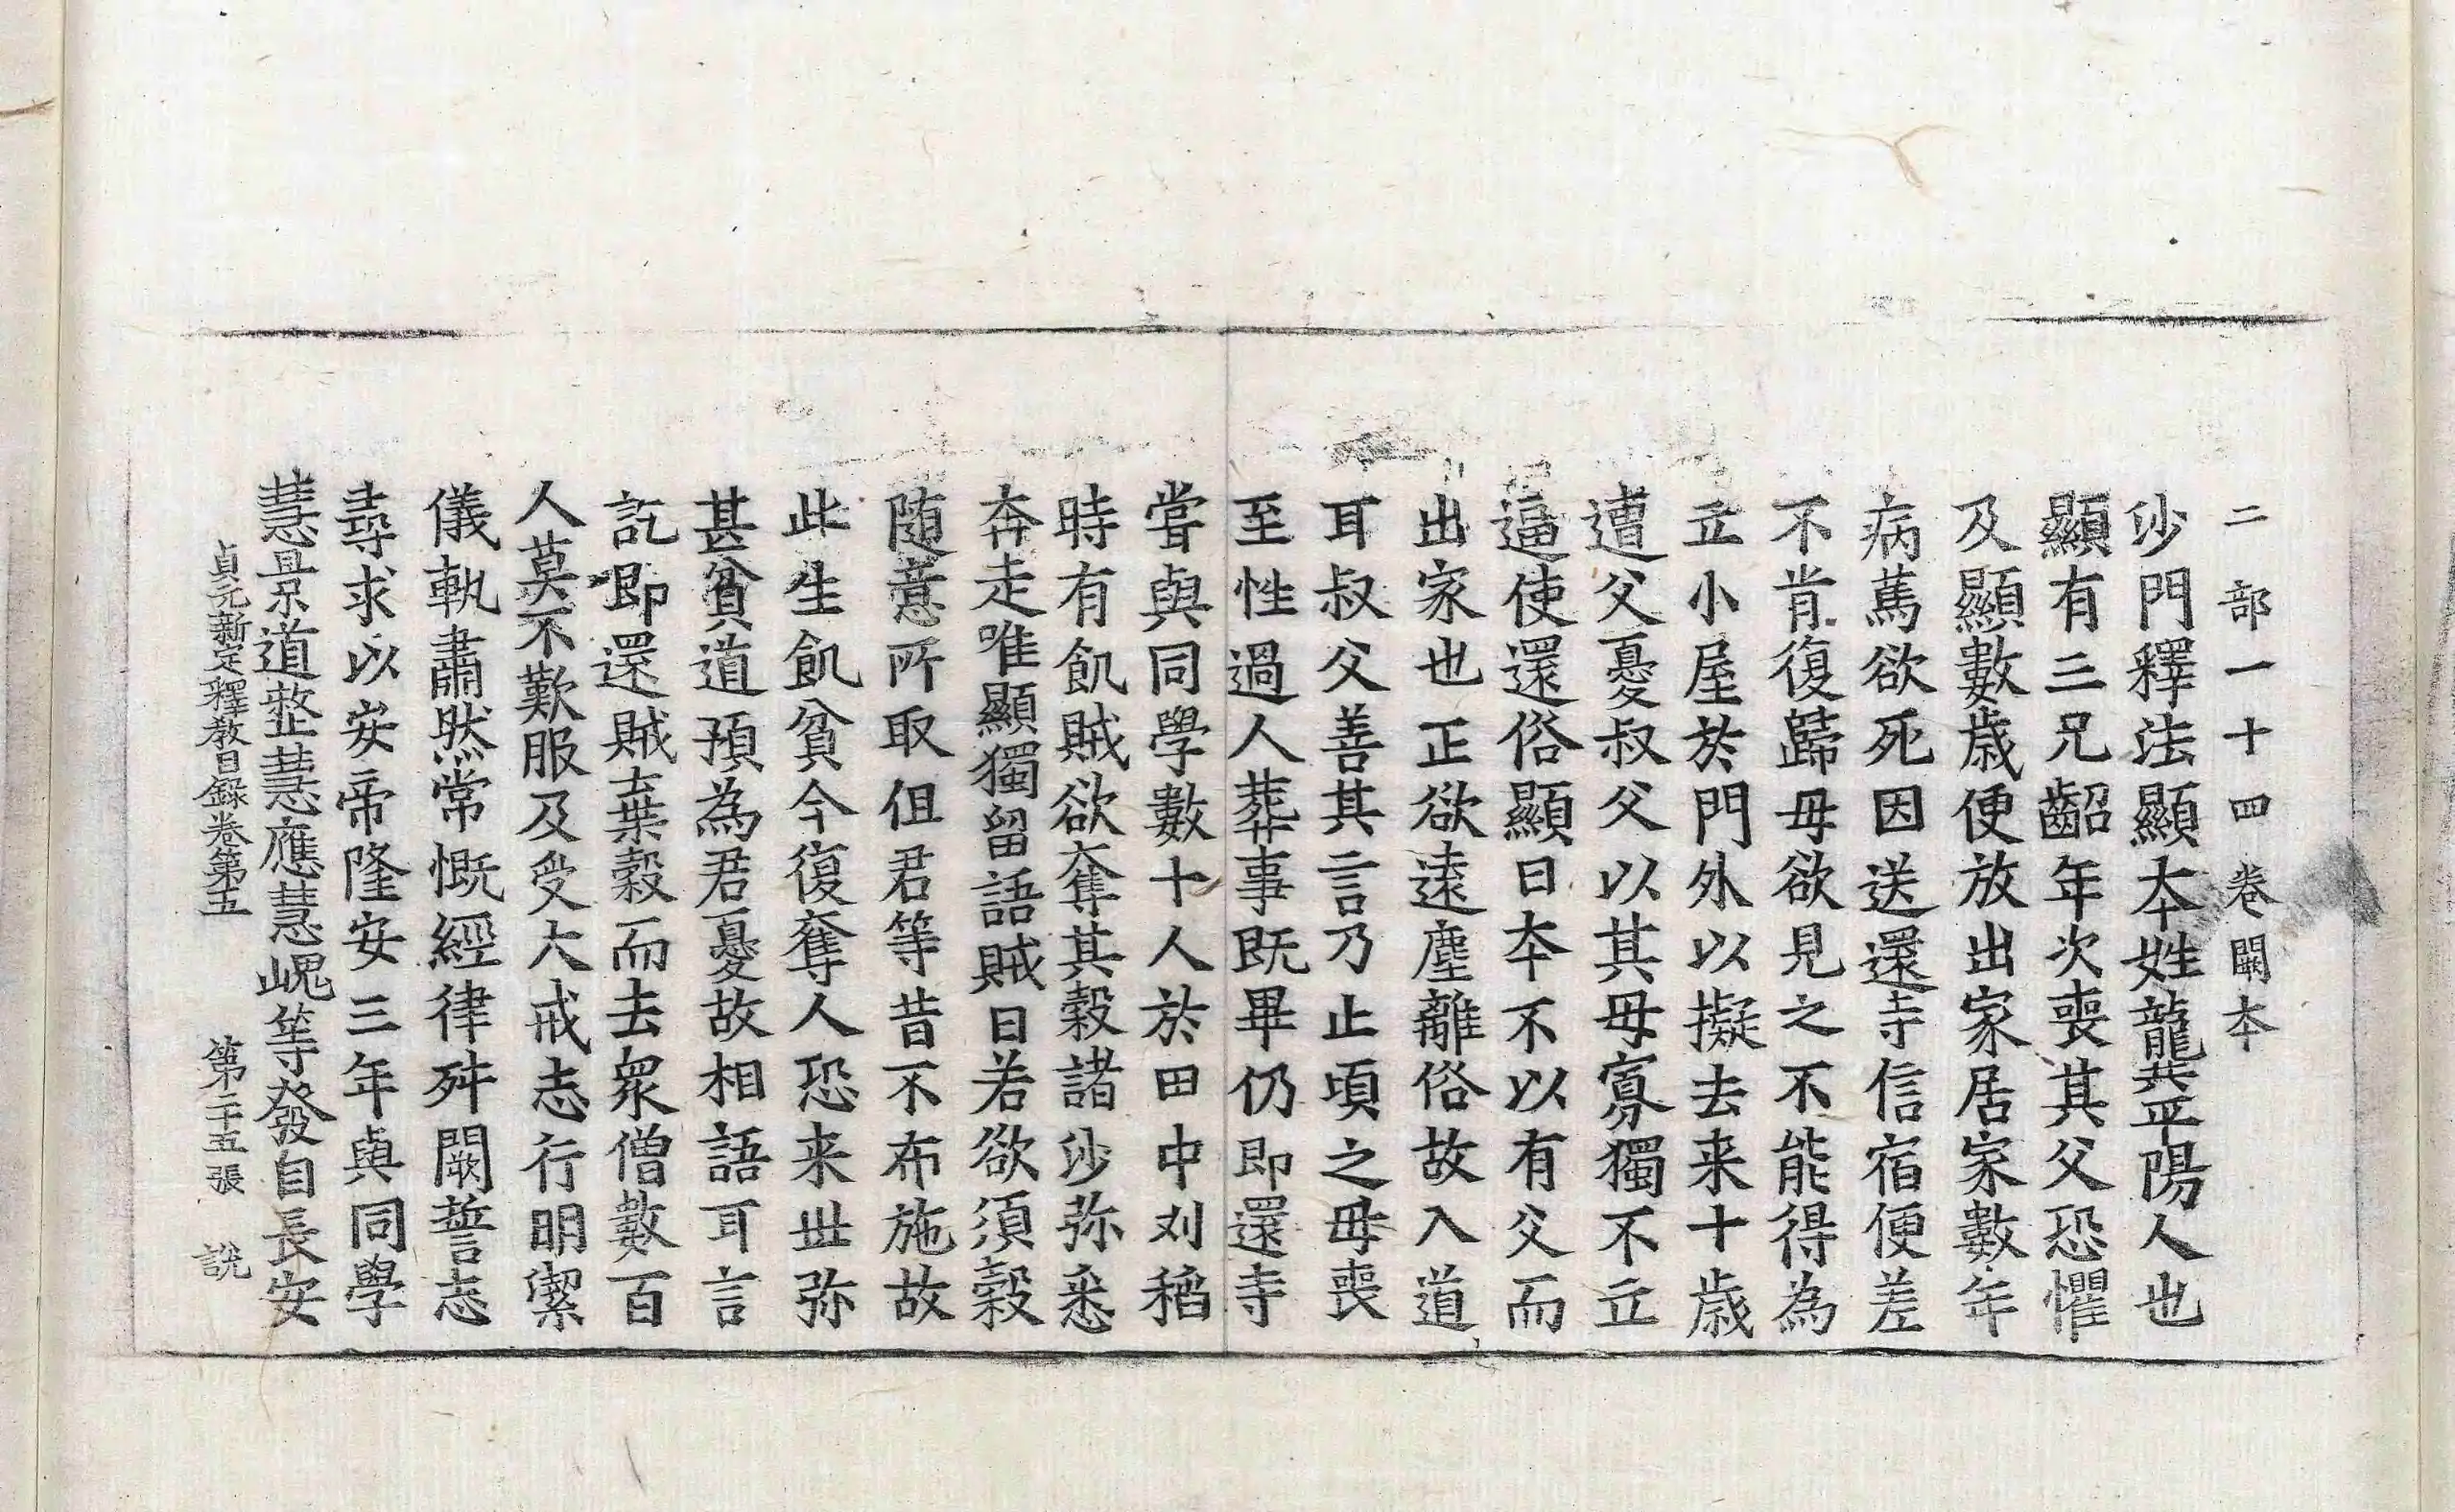 二部一十四卷闕本
沙門釋法顯夲姓龔平陽人也
顯有三兄齠年次喪其父恐懼
及顯數歲便放出家居家數年
病篤欲死因送還寺信宿便差
不肯復歸母欲見之不能得為
立小屋於門外以擬去来十歲
遭父憂叔父以其母寡獨不立
逼使還俗顯曰夲不以有父而
出家也正欲遠塵離俗故入道
耳叔父善其言乃止頃之母喪
至性過人葬事既畢仍即還寺
嘗與同學數十人於田中刈稻
時有飢賊欲奪其穀諸沙弥悉
奔走唯顯獨留語賊曰若欲須穀
随意所取但君等昔不布施故
此生飢貧今復奪人恐来世弥
甚貧道預為君憂故相語耳言
訖即還賊棄穀而去衆僧數百
人莫不歎服及受大戒志行明潔
儀軌肅然常慨經律舛闕誓志
尋求以安帝隆安三年與同學
慧景道整慧應慧嵬等發自長安
貞元新定釋教目録卷第五　第二十五張　說